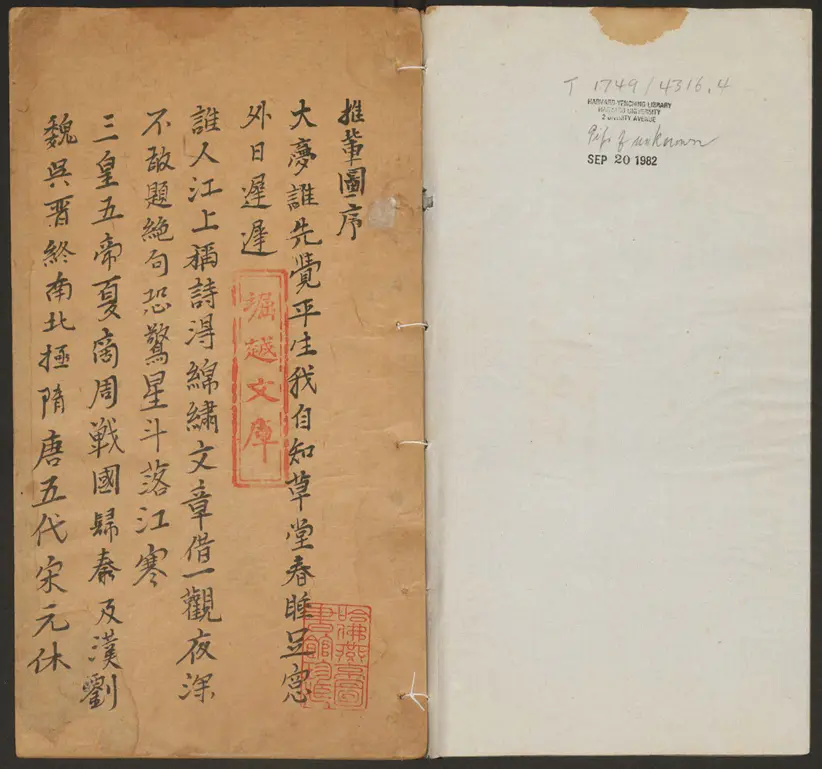 T 1749/4316.4
HARVARD-YENCHING LIBRARY
HARVARD UNIVERSITY
2 DIVINITY AVENUE
Gift of unknown
SEP 20 1982
推軰圖序
大夢誰先覺平生我自知草堂春睡足窓
外日遲遲
堀越文庫
誰人江上稱詩淂綿繡文章借一觀夜深
不敢題絶句恐驚星斗落江寒
三皇五帝夏商周戰國歸秦及漢劉
魏吳晋終南北極隋唐五代宋元休
哈佛燕京圖
書館珍藏